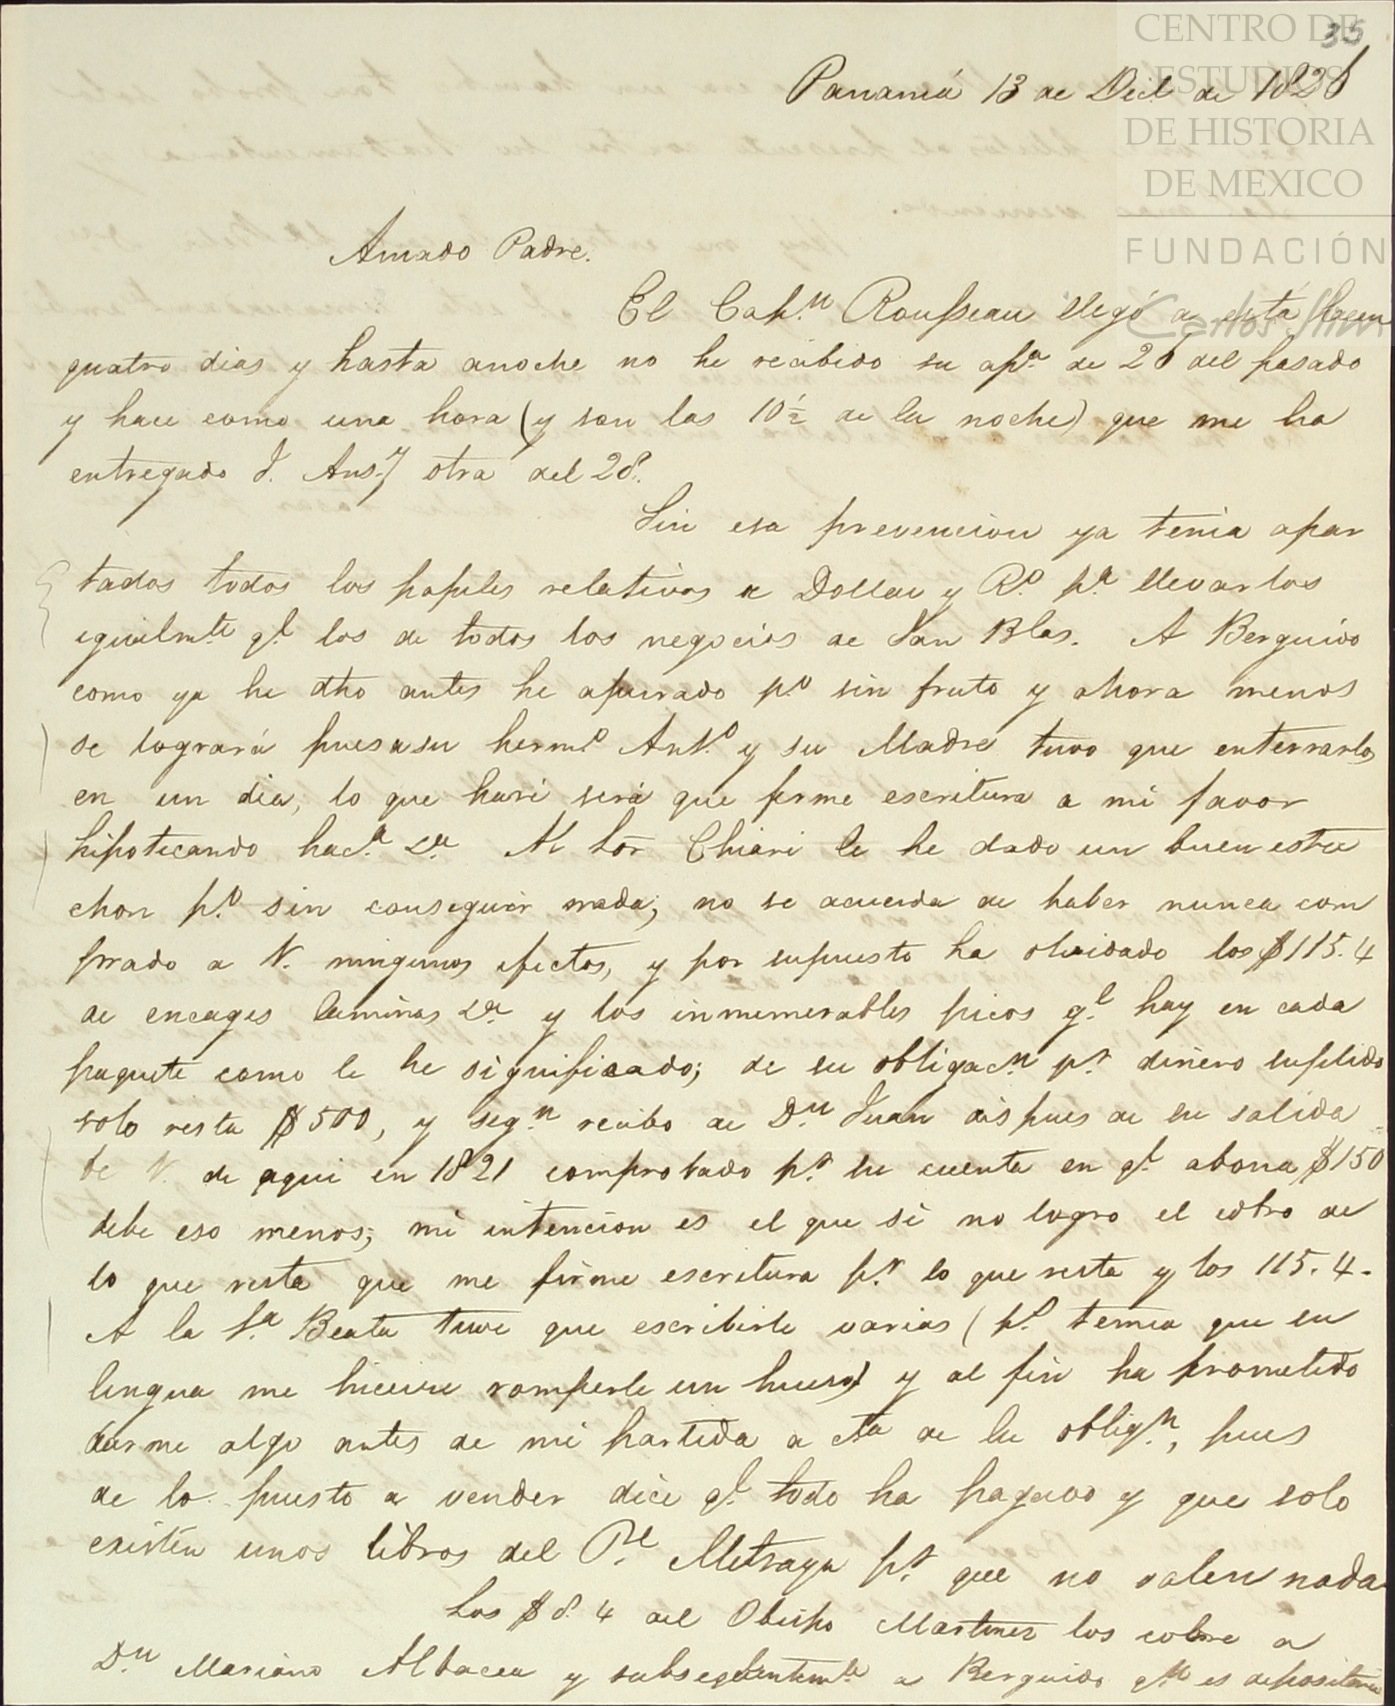 35
CENTRO DE
ESTUDIOS
DE HISTORIA
DE MEXICO
FUNDACIÓN
Carlos Slim
Panamá 13 de Dici. de 1826
Amado Padre.
El Capn. Rousseau llegó a esta hacen
quatro dias y hasta anoche no he recibido su apa. de 26 del pasado
y hace como una hora (y son las 10½ de la noche) que me ha
entregado otra del 28.
Sin esa prevencion ya tenia apar
tados todos los papeles relativos a Dollar y Ro. pa. llevarlos
igualmte. ql. los de todos los negocios de San Blas. A Berguido
como ya he dho antes he apurado po. sin fruto y ahora menos
se logrará pues a su hermo. Anto. y su Madre tuvo que enterrarlos
en un dia, lo que haré será que firme escritura a mi favor
hipotecando hacda. &a. Al Sor Chiari le he dado un buen estre
chon po. sin conseguir nada; no se acuerda de haber nunca com
prado a V. ningunos efectos, y por supuesto ha olvidado los $115.4
de encages laminas &a. y los inmemerables picos ql. hay en cada
paquete como le he significado; de su obligacn. pr. dinero suplido
solo resta $500, y segn. recibo de Dn. Juan dispues de su salida
de V. de aqui en 1821 comprobado pr. su cuenta en ql. abona $150
debe eso menos; mi intencion es el que si no logro el cobro de
lo que resta que me firme escritura pr. lo que resta y los 115.4.
A la Sa. Beata tuve que escribirle varias (po. temia que su
lengua me hiciese romperle un hueso) y al fin ha prometido
darme algo antes de mi partida a cta de la obligon., pues
de lo puesto a vender dice ql. todo ha pagado y que solo
existen unos libros del Pe. pr. que no valen nada
Los $8.4 del Obispo Martinez los cobre a
Dn. Mariano Albacea y subsequentemte. a Berguido qn. es depositario